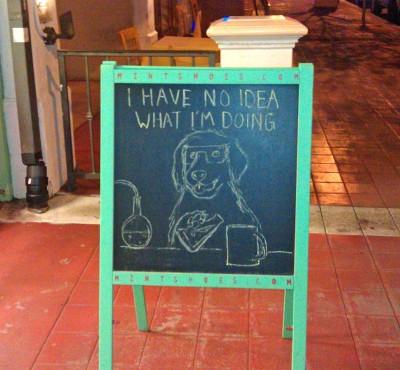 MINTSHOES.COM
I HAVE NO IDEA
WHAT I'M DOING
MINTSHOES.COM